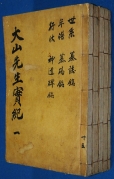 大山先生實紀 一
世系 墓誌銘
年譜 墓碣銘
行狀 神道碑銘